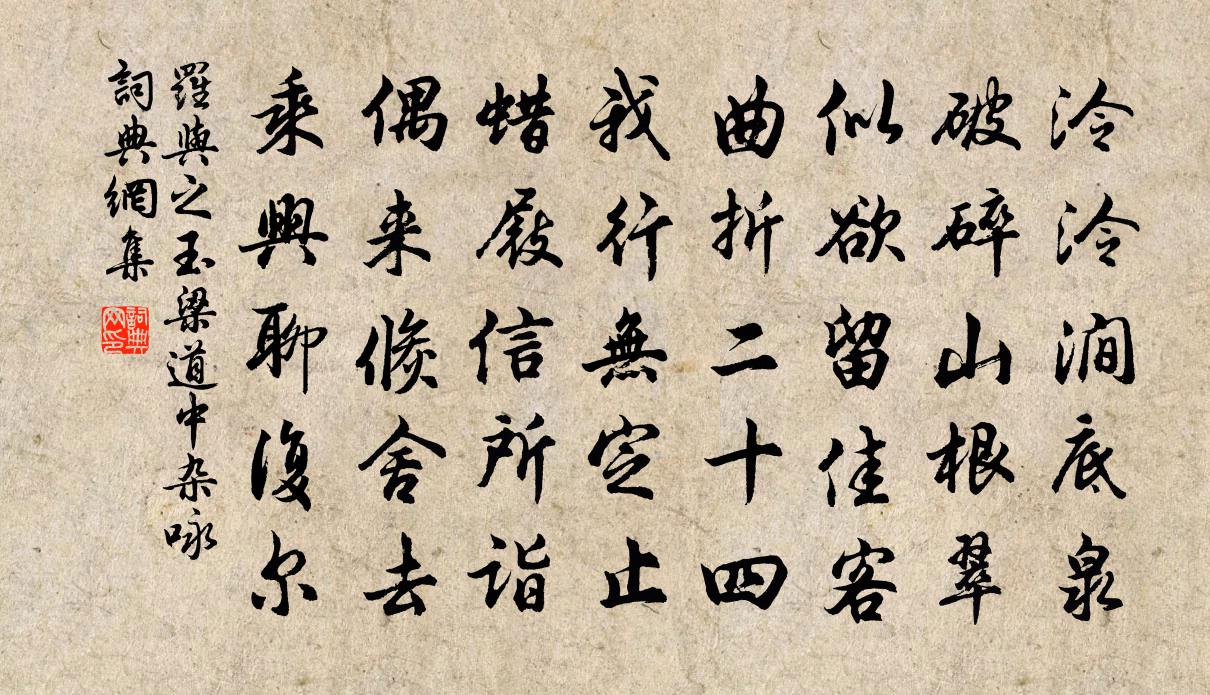 泠泠澗底泉
破碎山根翠
似欲留佳客
曲折二十四
我行無定止
蜡屐信所詣
偶来倏舍去
乘興聊復尔
羅與之玉梁道中杂咏
詞典網集
詞典網印